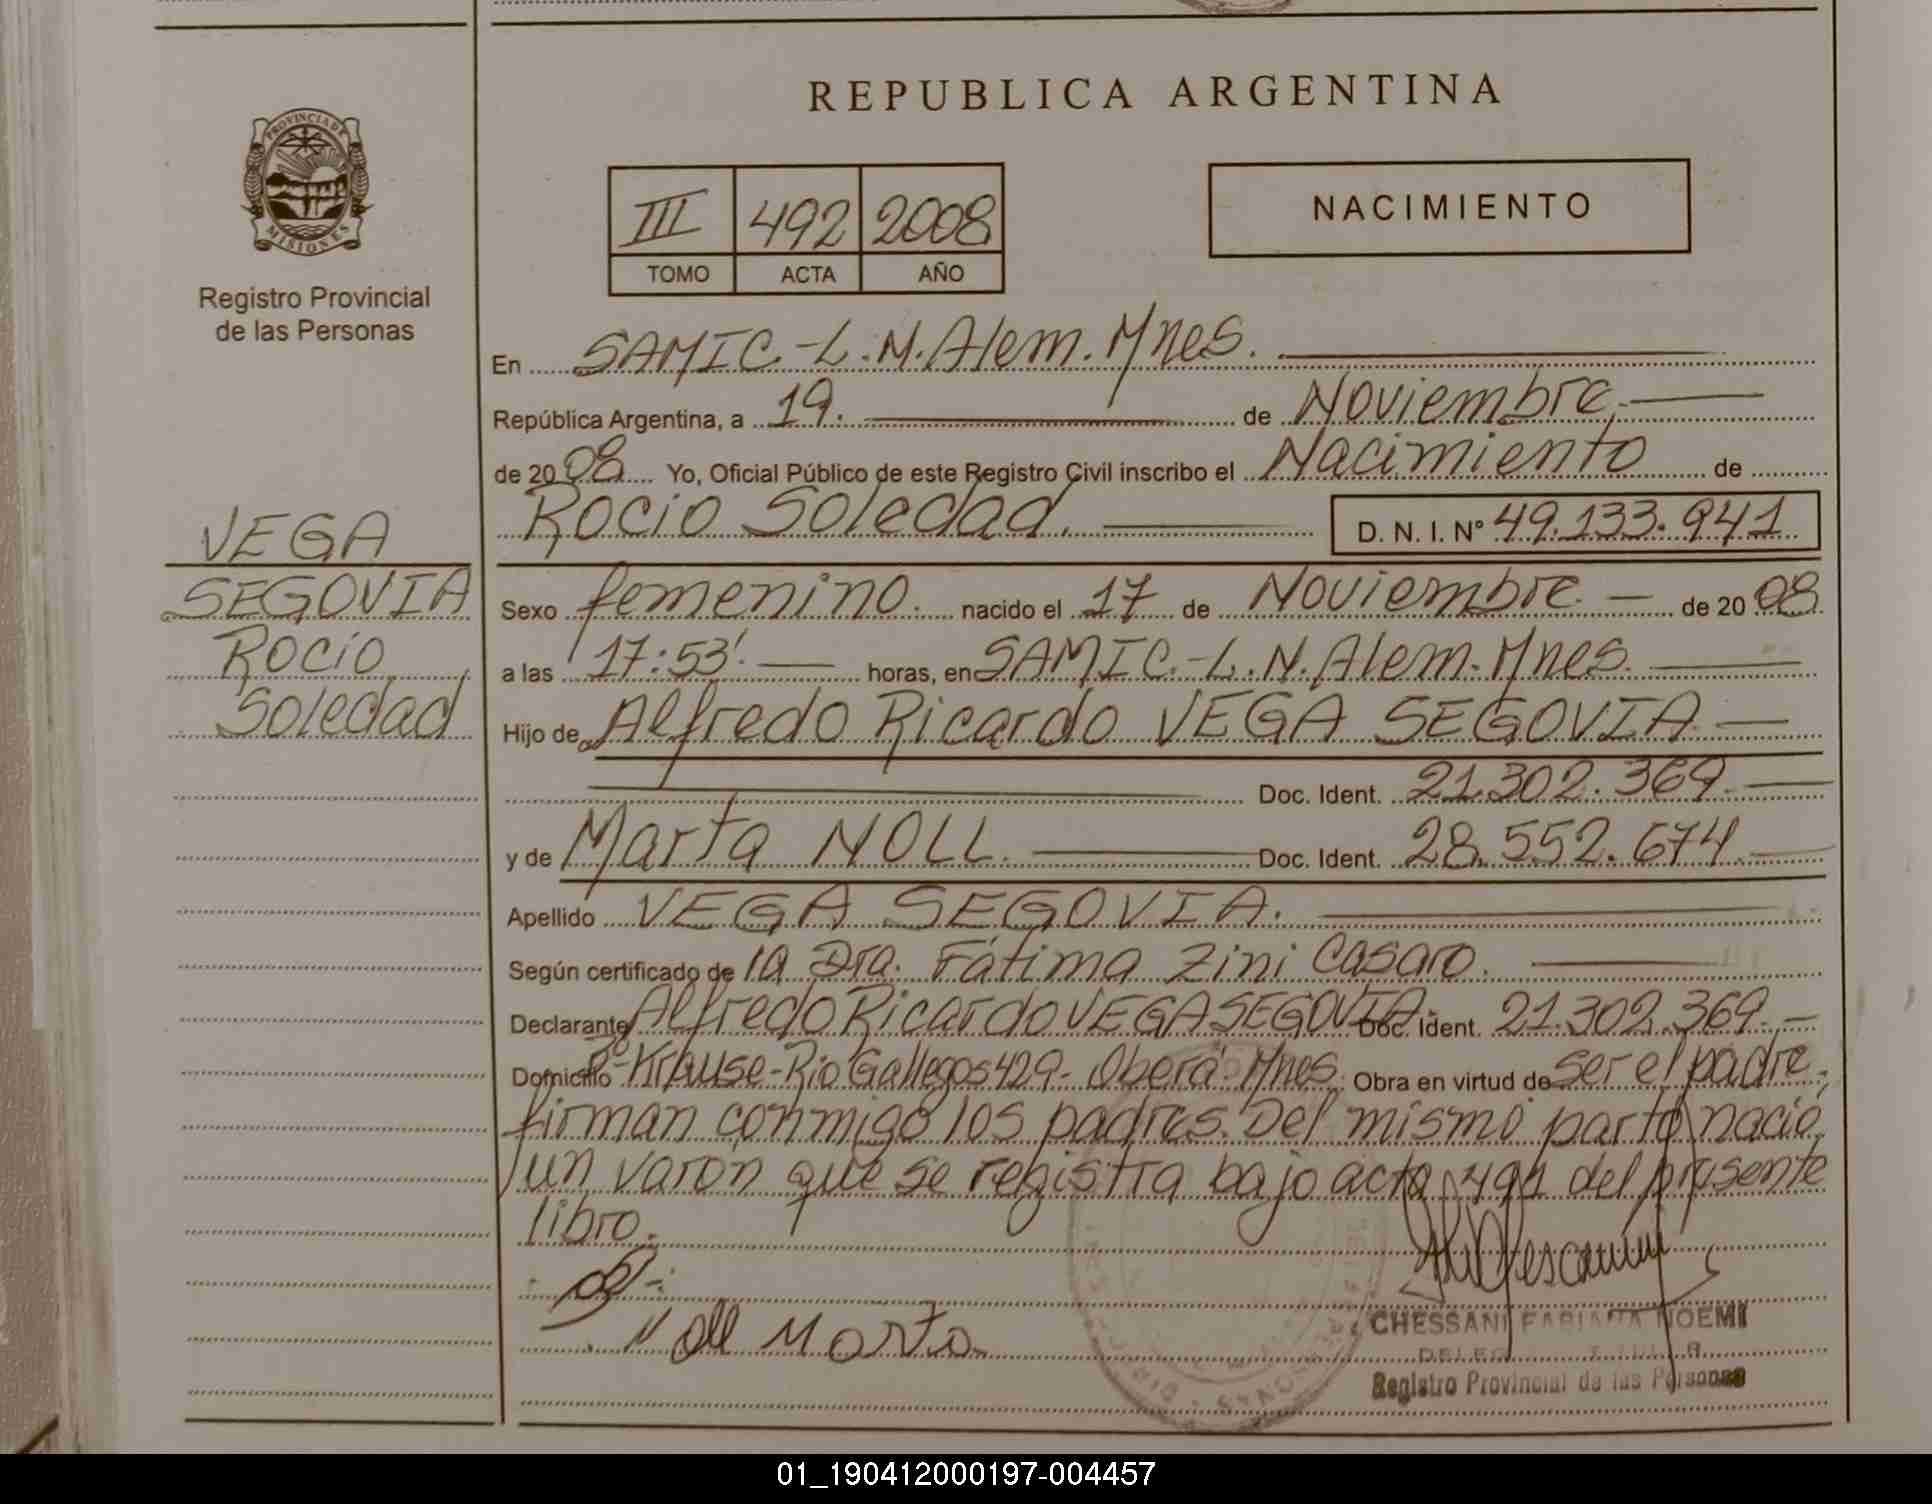 REPUBLICA ARGENTINA
PROVINCIA DE
MISIONES
Registro Provincial
de las Personas
III 492 2008
TOMO ACTA AÑO
NACIMIENTO
En SAMIC.-L.N.Alem.Mnes.
República Argentina, a 19. de Noviembre.
de 2008 Yo, Oficial Público de este Registro Civil inscribo el Nacimiento de
Rocio Soledad. D. N. I. Nº 49.133.941
VEGA
SEGOVIA
Rocío
Soledad
Sexo femenino. nacido el 17 de Noviembre. de 2008
a las 17:53'. horas, en SAMIC.-L.N.Alem.Mnes.
Hijo de Alfredo Ricardo VEGA SEGOVIA
Doc. Ident. 21.302.369.
y de Marta NOLL. Doc. Ident. 28.552.674.
Apellido VEGA SEGOVIA.
Según certificado de la Dra. Fátima Zini Casaro.
Declarante Alfredo Ricardo VEGA SEGOVIA. Doc. Ident. 21.302.369.
Domicilio Bº Krause-Río Gallegos 429- Oberá-Mnes. Obra en virtud de ser el padre,
firman conmigo los padres. Del mismo parto nació
un varón que se registra bajo acta 491 del presente
libro.
Noll Marta
CHESSANI FABIANA NOEMI
Registro Provincial de las Personas
01_190412000197-004457